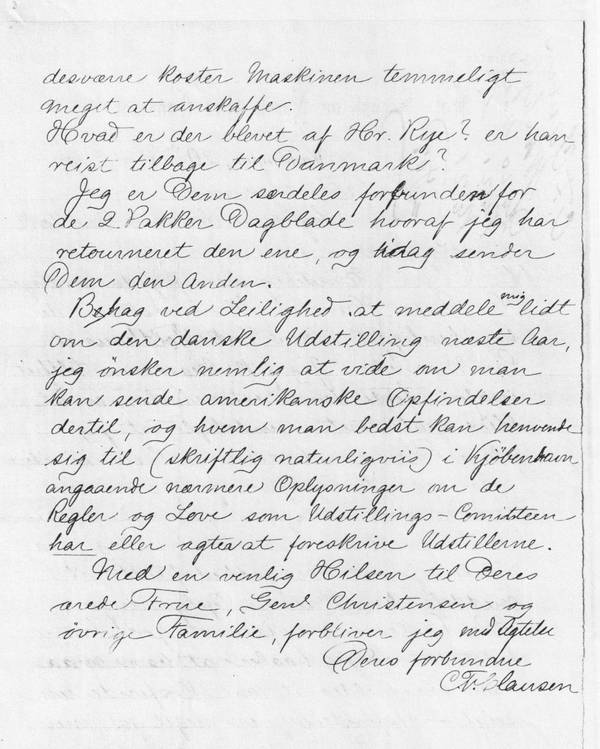 desværre koster Maskinen temmeligt
meget at anskaffe.
Hvad er der blevet af Hr. Rye? er han
reist tilbage til Danmark?
Jeg er Dem særdeles forbunden for
de 2 Pakker Dagblade hvoraf jeg har
retourneret den ene, og idag sender
Dem den anden.
Behag ved Leilighed at meddele mig lidt
om den danske Udstilling næste Aar,
jeg ønsker nemlig at vide om man
kan sende amerikanske Opfindelser
dertil, og hvem man bedst kan henvende
sig til (skriftlig naturligviis) i Kjöbenhavn
angaaende nærmere Oplysninger om de
Regler og Love som Udstillings-Comitteen
har eller agter at foreskrive Udstillerne.
Med en venlig Hilsen til Deres
ærede Frue, Genl. Christensen og
øvrige Familie, forbliver jeg med Agtelse
Deres forbundne
C.V. Clausen